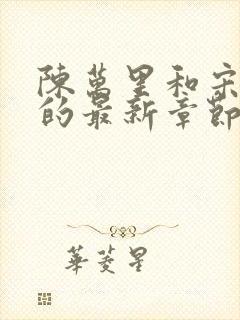 陳萬里和宋
的最新章節
華菱星